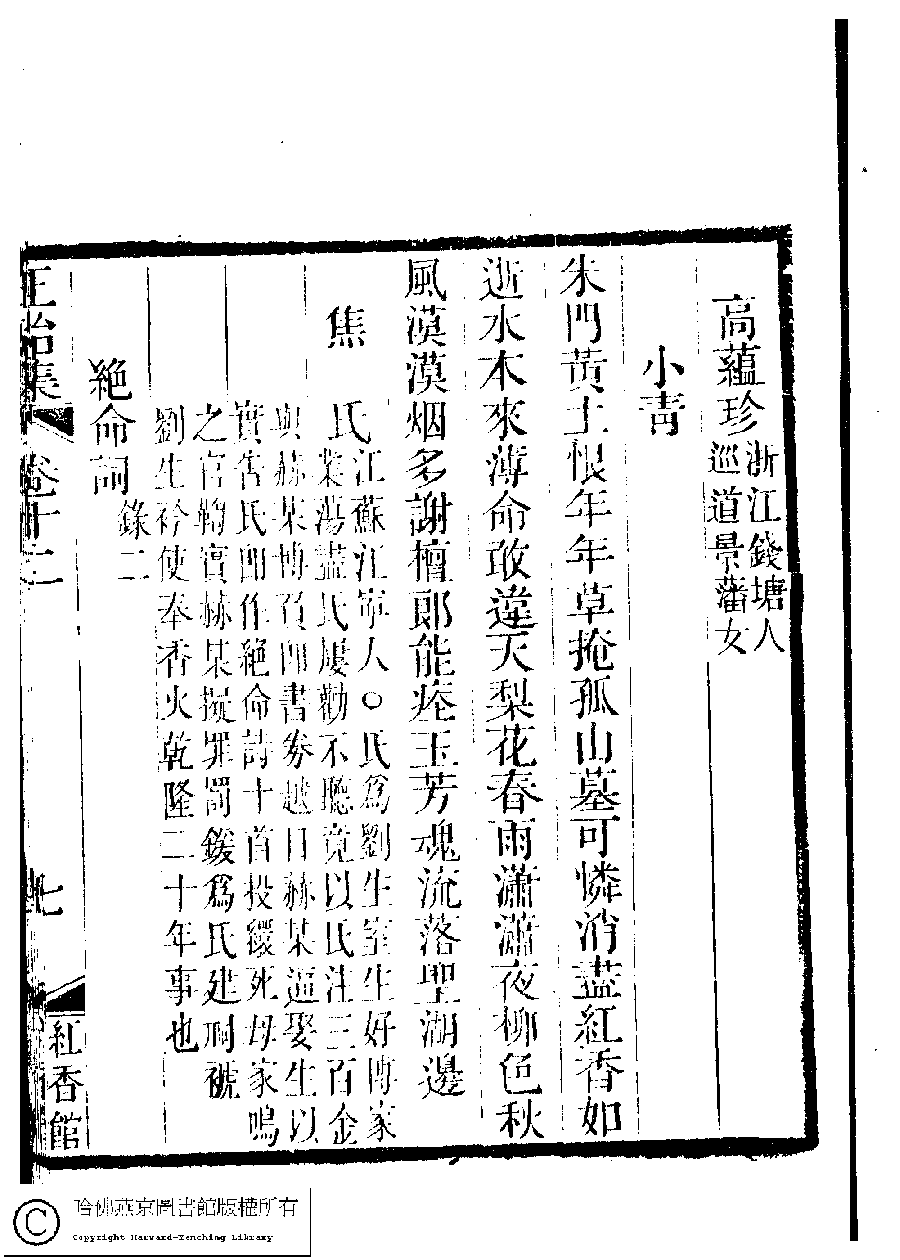 高蘊珍浙江錢塘人
巡道景藩女
小青
朱門黃土恨年年草掩孤山墓可憐消盡紅香如
逝水本來薄命敢違天梨花春雨瀟瀟夜柳色秋
風漠漠烟多謝檀郎能瘞玉芳魂流落聖湖邊
焦氏江蘇江寧人○氏爲劉生室生好博家
業蕩盡氏屢勸不聽竟以氏注三百金
與赫某博負卽書券越日赫某逼娶生以
實告氏卽作絕命詩十首投繯死母家鳴
之官鞫實赫某擬罪罰鍰爲氏建祠褫
劉生衿使奉香火乾隆二十年事也
絕命詞錄二
正始集 卷十二 七 紅香館
哈佛燕京圖書館版權所有
Copyright Harvard-Yenching Library